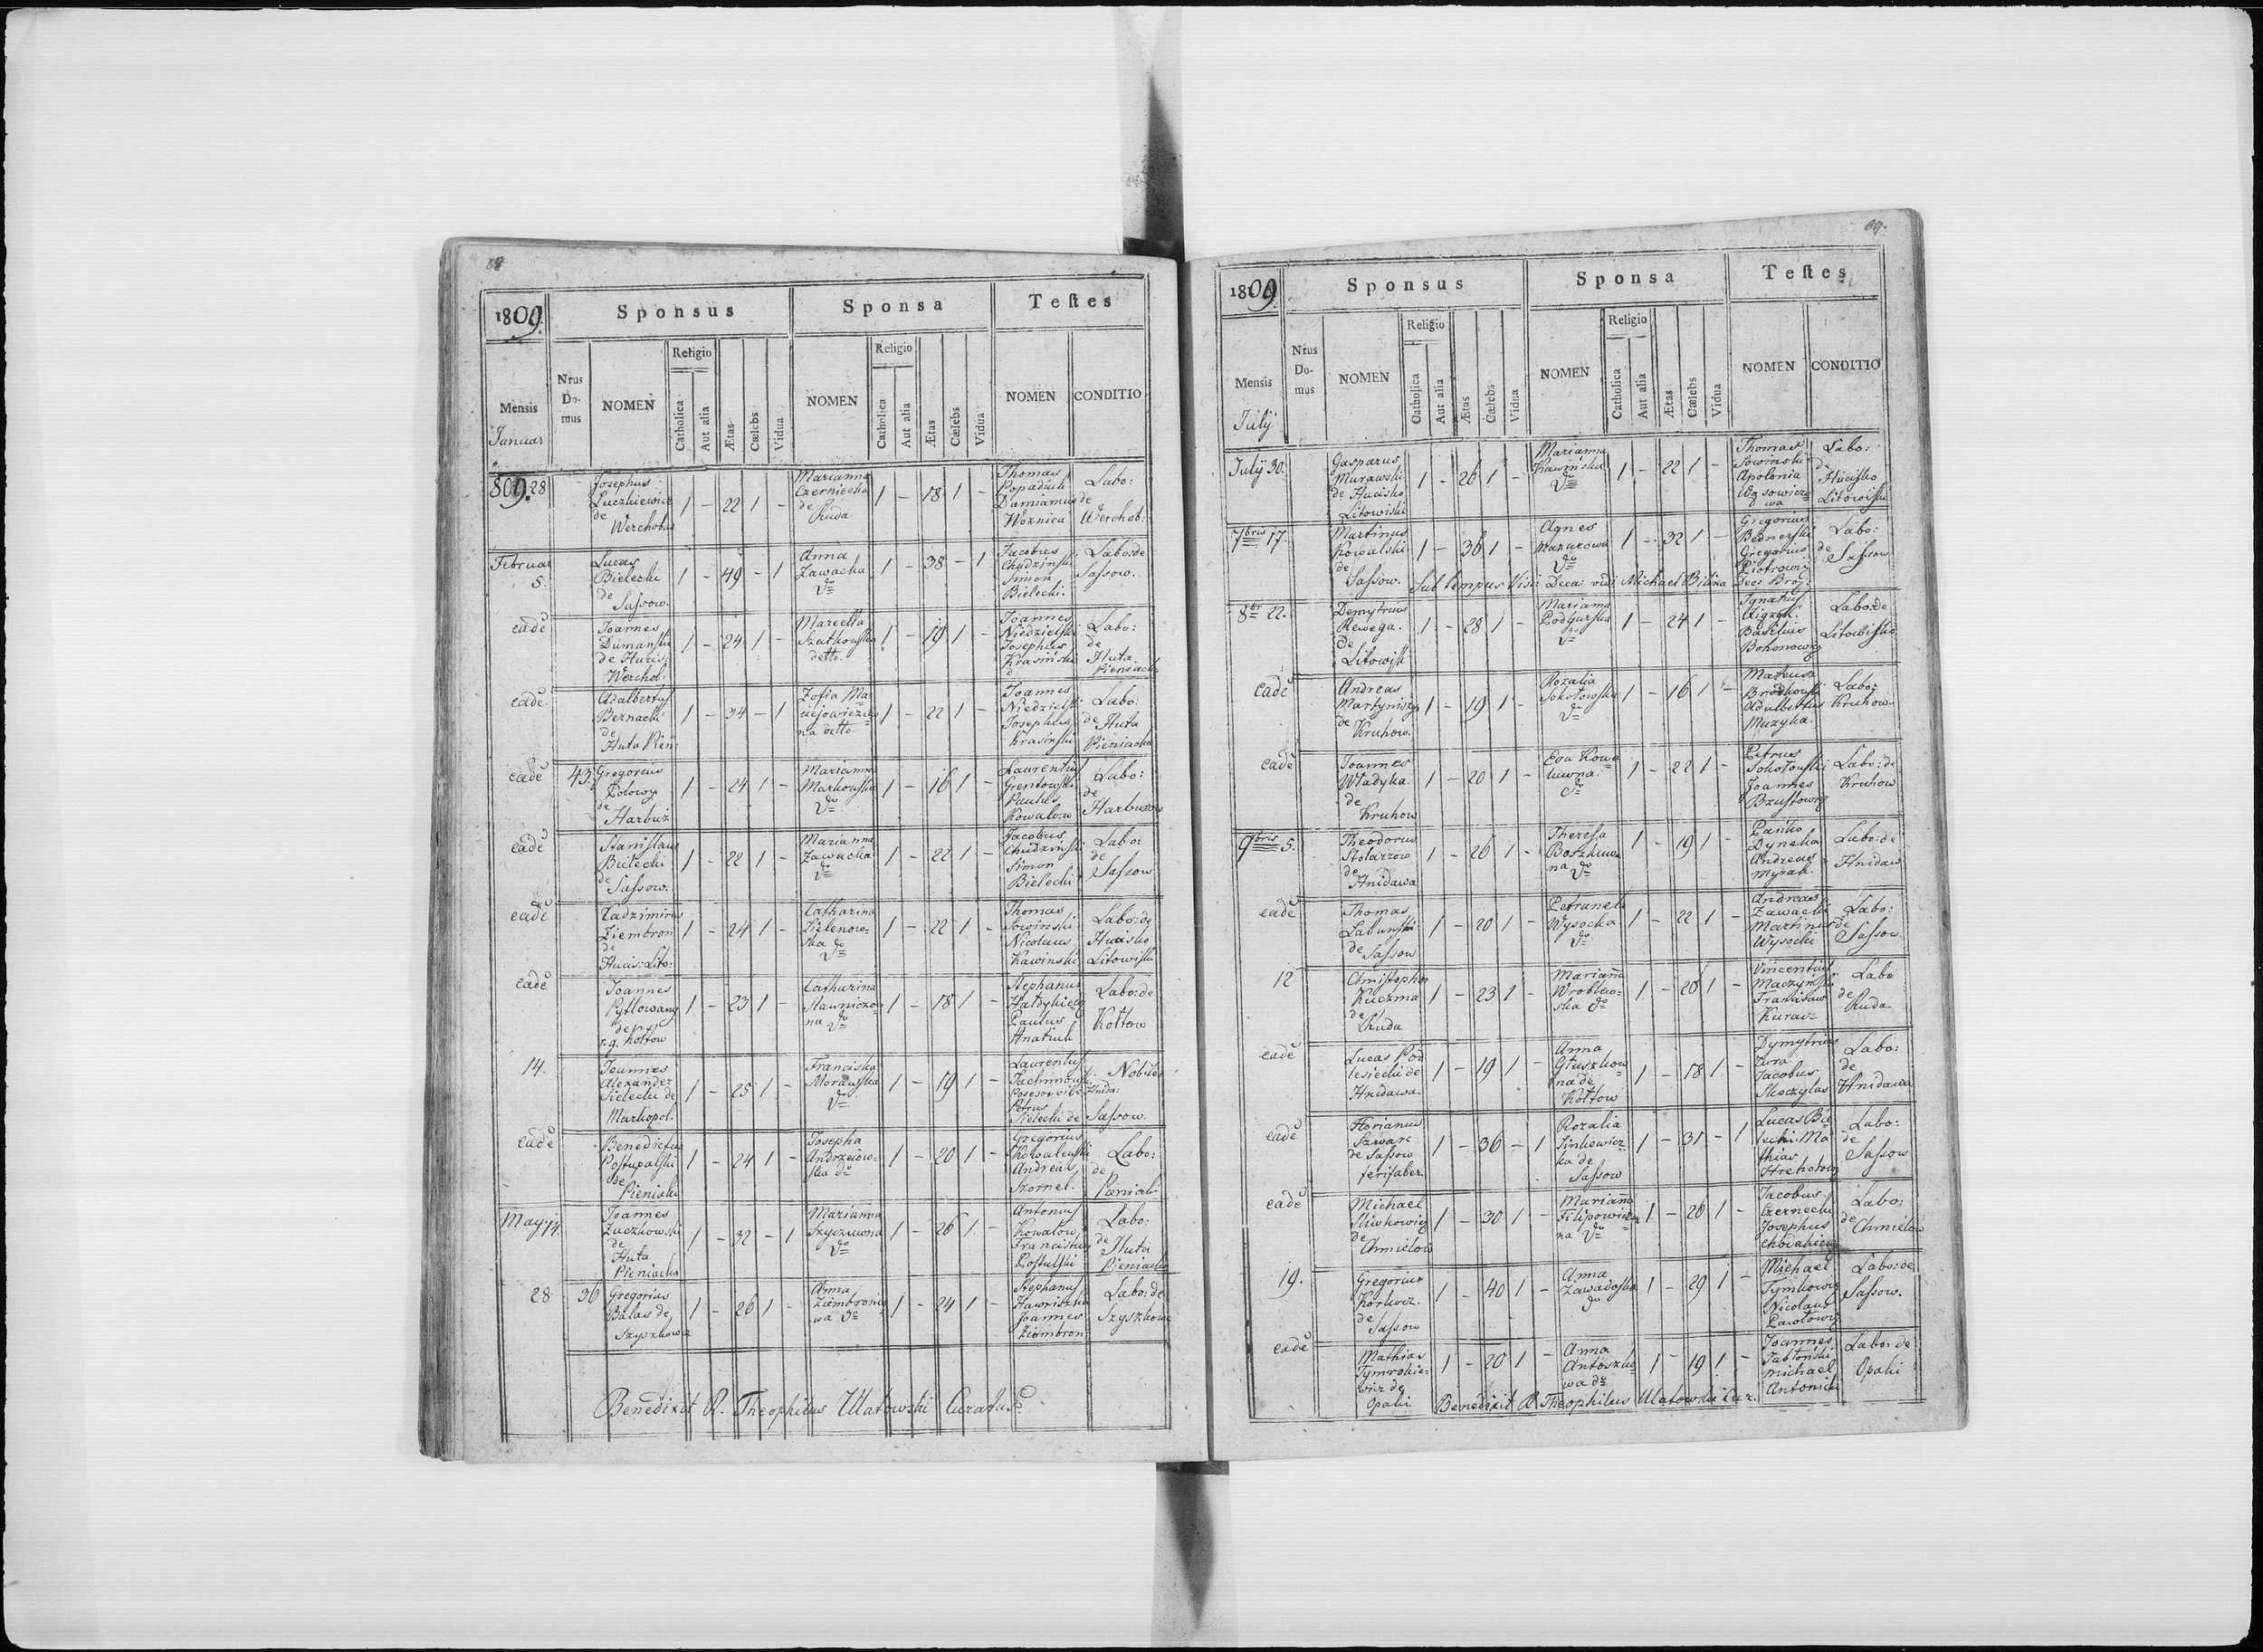 1809.
Sponsus
Sponsa
Testes
Mensis
Januar
Nrus
Do-
mus
NOMEN
Religio
Catholica
Aut alia
Ætas
Cœlebs
Vidua
NOMEN
Religio
Catholica
Aut alia
Ætas
Cœlebs
Vidua
NOMEN
CONDITIO
809. 28
Josephus
Luczkiewicz
de
Werchobus
1 - 22 1 -
Marianna
Czerniecka
de
Ruda
1 - 18 1 -
Thomas
Popadiuk
Damianus
Woznica
Labo:
de
Werchob:
Februar
5.
Lucas
Bielecki
de
Sassow.
1 - 49 - 1
Anna
Zawacka
do
1 - 38 - 1
Jacobus
Chudzinski
Simon
Bielecki.
Labo: de
Sassow.
eade
Joannes
Dumanski
de Hucis:
Werchob:
1 - 24 1 -
Marcella
Szatkowska
detto.
1 - 19 1 -
Joannes
Niedzielski
Josephus
Krasinski
Labo:
de
Huta
Pieniacka
eade
Adalbertus
Bernacki
de
Huta Pien:
1 - 34 - 1
Zofia Ma
ciejowiczow
na detto.
1 - 22 1 -
Joannes
Niedzielski
Josephus
Krasinski
Labo:
de Huta
Pieniacka
eade
43.
Gregorius
Polowy
de
Harbuz
1 - 24 1 -
Marianna
Markowska
do
1 - 16 1 -
Laurentius
Grentowski
Paulus
Kowalow
Labo:
de
Harbuzow
eade
Stanislaus
Bielecki
de
Sassow.
1 - 22 1 -
Marianna
Zawacka
do
1 - 22 1 -
Jacobus
Chudzinski
Simon
Bielecki
Labo:
de
Sassow
eade
Ziembron
de
Hucis: Lito:
1 - 24 1 -
Catharina
Zielenow-
ska do
1 - 22 1 -
Thomas
Sowinski
Nicolaus
Kawinski
Labo: de
Hucisko
Litowisk:
eade
Joannes
Pytlowany
de
r. g. Koltow
1 - 23 1 -
Catharina
Stawniczow
na do
1 - 18 1 -
Stephanus
Paulus
Hnatiuk
Labo: de
Koltow
14.
Joannes
Alexander
Sielecki de
Markopol.
1 - 25 1 -
Franciska
Morawska
do
1 - 19 1 -
Laurentius
Jachimowski
Petrus
Sielecki de
Nobiles
Hnida:
Sassow.
eade
Benedictus
Postupalski
de
Pieniaki
1 - 24 1 -
Josepha
Andrzeiow-
ska do
1 - 20 1 -
Gregorius
Kowalewski
Andreas
Szornel.
Labo:
de
Pieniaki
May 14.
Joannes
Zuczkowski
de
Huta
Pieniacka
1 - 32 - 1
Marianna
Szyszuwna
do
1 - 26 1 -
Antonius
Kowalow
Franciscus
Postulski
Labo:
de Huta
Pieniacka
28
36
Gregorius
Balas de
Szyszkowce
1 - 26 1 -
Anna
Ziembronio
wa do
1 - 24 1 -
Stephanus
Hawriszko
Joannes
Ziembron
Labo: de
Szyszkowce
Benedixit R. Theophilus Ulatowski Curatus
89.
1809.
Sponsus
Sponsa
Testes
Mensis
July
Nrus
Do-
mus
NOMEN
Religio
Catholica
Aut alia
Ætas
Cœlebs
Vidua
NOMEN
Religio
Catholica
Aut alia
Ætas
Cœlebs
Vidua
NOMEN
CONDITIO
July 30.
Gasparus
Murawski
de Hucisko
Litowiski
1 - 26 1 -
Marianna
Kawinska
do
1 - 22 1 -
Thomas
Sowinski
Apolonia
Wasowiczo
wa
Labo:
de
Hucisko
Litowiski
7bris 17.
Martinus
Kowalski
de
Sassow.
1 - 36 1 -
Agnes
Mazurowa
do
1 - 32 1 -
Gregorius
Bednarski
Gregorius
Piotrowicz
Labo:
de
Sassow
Sub tempus Visi: Deca: vidi Michael Bilina Dec: Brod:
8br 22.
Demytrius
Rewega.
de
Litowisk
1 - 28 1 -
Marianna
Podgurska
do
1 - 24 1 -
Ignatius
Basilius
Bohonowicz
Labo: de
Litowisko
eade
Andreas
Martyniszyn
de
Kruhow.
1 - 19 1 -
Rozalia
Sokolowska
do
1 - 16 1 -
Mateusz
Brodkowski
Adalbertus
Muzyka.
Labo:
Kruhow
eade
Joannes
Wladyka.
de
Kruhow
1 - 20 1 -
Eva Kowa
luwna.
do
1 - 22 1 -
Petrus
Sokolowski
Joannes
Brzustowicz
Labo: de
Kruhow
9bris 5.
Theodorus
Stolarzow
de
Hnidawa
1 - 26 1 -
Theresa
Boszkiew
na do
1 - 19 1 -
Panko
Dyneka
Andreas
Mysak.
Labo: de
Hnidaw
eade
Thomas
Labunski
de Sassow
1 - 20 1 -
Petrunela
Wysocka
do
1 - 22 1 -
Andreas
Zawacki
Martinus
Wysocki
Labo:
de
Sassow.
12
Christophor
Kuczma
de
Ruda
1 - 23 1 -
Marianna
Wroblew-
ska do
1 - 26 1 -
Vincentius
Maczynski
Franciscus
Kuraś
Labo
de
Ruda
eade
Lucas Pod
lesiecki de
Hnidawa.
1 - 19 1 -
Anna
Gluszkow
na de
Koltow
1 - 18 1 -
Dymytrius
Zura
Jacobus
Skoczylas
Labo:
de
Hnidawa
eade
Florianus
Szwarc
de Sassow
ferifaber
1 - 36 - 1
Rozalia
Sinkewicz
ka de
Sassow
1 - 31 - 1
Lucas Bie
lecki. Ma
thias
Labo:
de
Sassow
eade
Michael
Sliwkowicz
de
Chmielow
1 - 30 1 -
Marianna
Filipowiczow
na do
1 - 26 1 -
Jacobus
Czernecki
Josephus
Labo:
de
Chmielow
19.
Gregorius
Korkosz.
de
Sassow
1 - 40 1 -
Anna
Zawadoska
do
1 - 29 1 -
Michael
Tymkowicz
Nicolaus
Pawlowicz
Labo: de
Sassow.
eade
Mathias
Tymrokie:
wicz de
Opaki
1 - 20 1 -
Anna
Antoszko
wa do
1 - 19 1 -
Joannes
Jablonski
Michael
Antonicki
Labo: de
Opaki
Benedixit R Theophilus Ulatowski Cur.